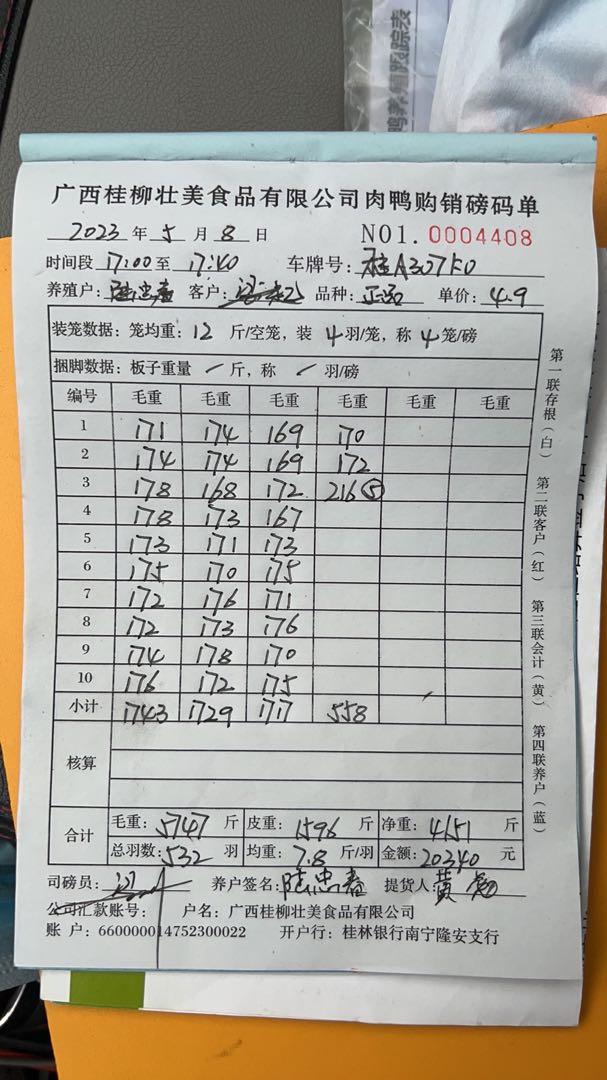 鸭养殖跟踪表
广西桂柳壮美食品有限公司肉鸭购销磅码单
2023 年 5 月 8 日 NO1. 0004408
时间段 17:00 至 17:40 车牌号: 桂A307F0
养殖户: 陆忠春 客户: 品种: 单价: 4.9
装笼数据: 笼均重: 12 斤/空笼, 装 4 羽/笼, 称 4 笼/磅
捆脚数据: 板子重量 / 斤, 称 / 羽/磅
编号 毛重 毛重 毛重 毛重 毛重 毛重
1 171 174 169 170
2 174 174 169 172
3 178 168 172 216⑤
4 178 173 167
5 173 171 173
6 175 170 175
7 172 176 171
8 172 173 176
9 174 178 170
10 176 172 175
小计 1743 1729 1717 558
核算
合计 毛重: 5747 斤 皮重: 1596 斤 净重: 4151 斤
总羽数: 532 羽 均重: 7.8 斤/羽 金额: 20340 元
司磅员: 养户签名: 陆忠春 提货人: 黄
公司汇款账号: 户名: 广西桂柳壮美食品有限公司
账 户: 660000014752300022 开户行: 桂林银行南宁隆安支行
第一联存根(白)
第二联客户(红)
第三联会计(黄)
第四联养户(蓝)